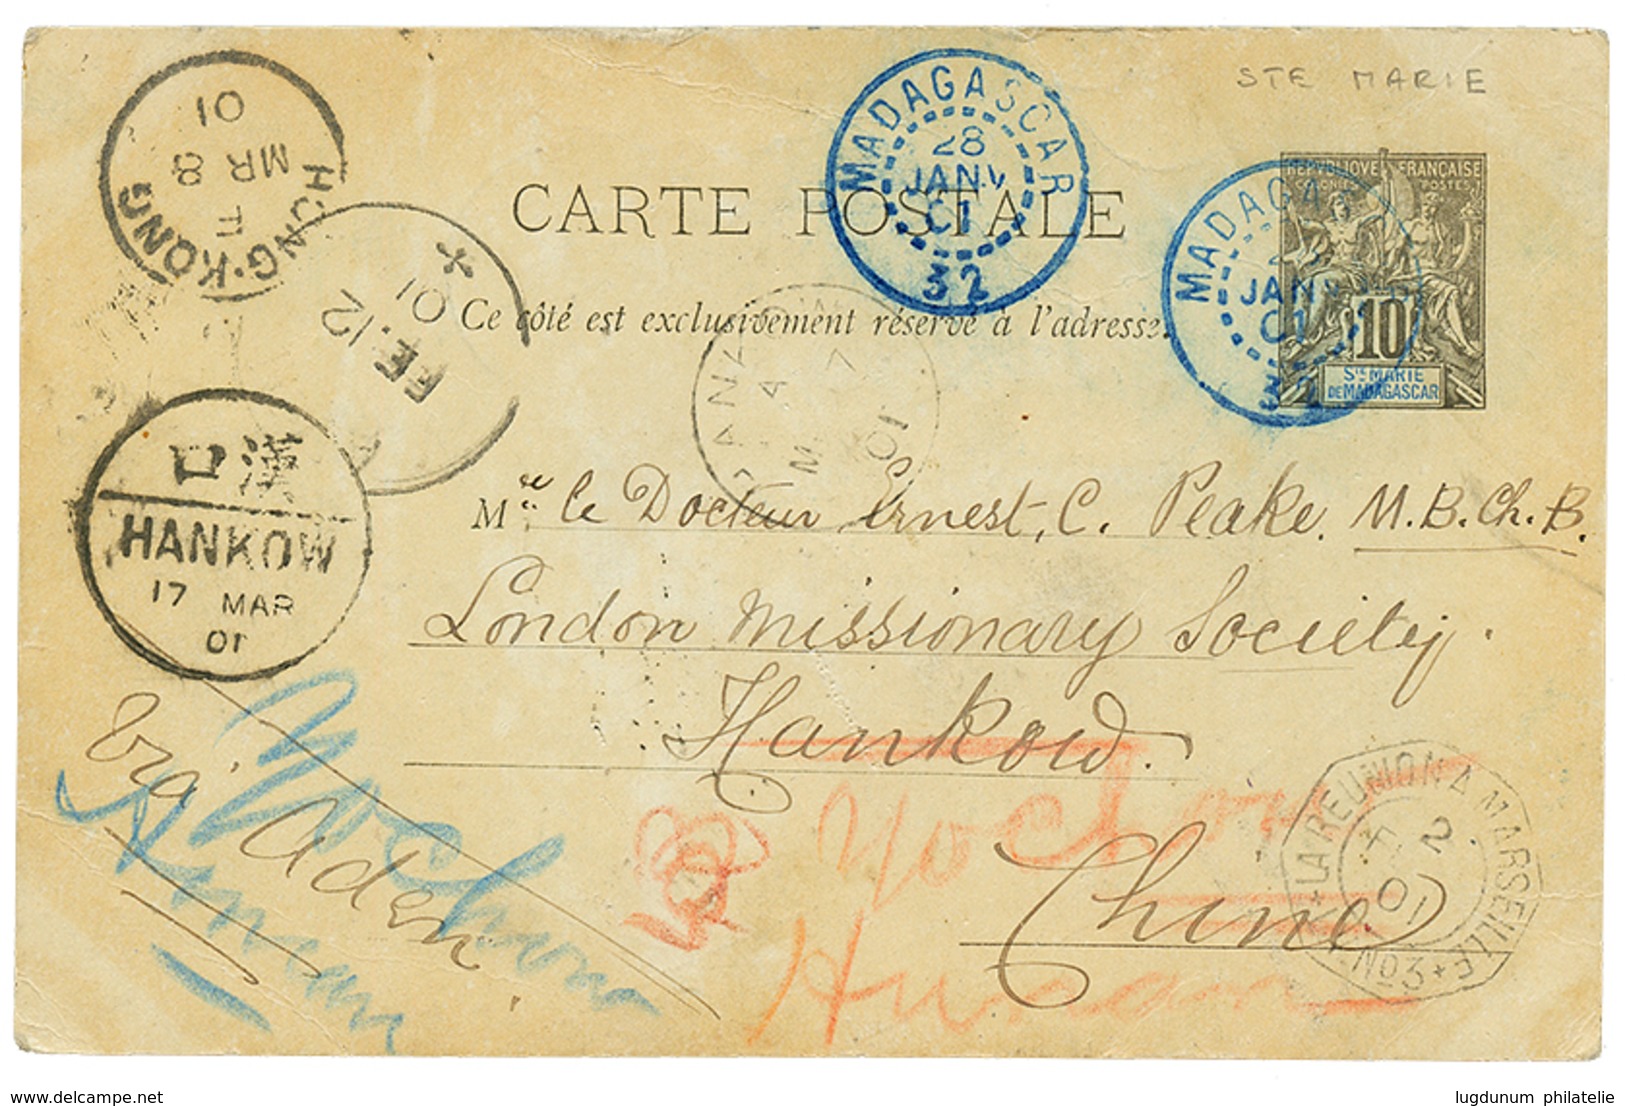 STE MARIE
HONG·KONG
E
MR 8
01
MADAGASCAR
28
JANV
01
32
MADAGAS
JANV
01
32
REPUBLIQUE FRANÇAISE
COLONIES POSTES
10
STE MARIE
DE MADAGASCAR
CARTE POSTALE
Ce côté est exclusivement réservé à l'adresse.
FE. 12
01
漢口
HANKOW
17 MAR
01
01
M" le Docteur Ernest. C. Peake. M.B.Ch.B.
London Missionary Society.
Hankow.
Chine
Via Aden
Yochow
Hunan
Yochow
Hunan
LA REUNION A MARSEILLE
2
01
L.Nº3
delcampe.net
lugdunum philatelie